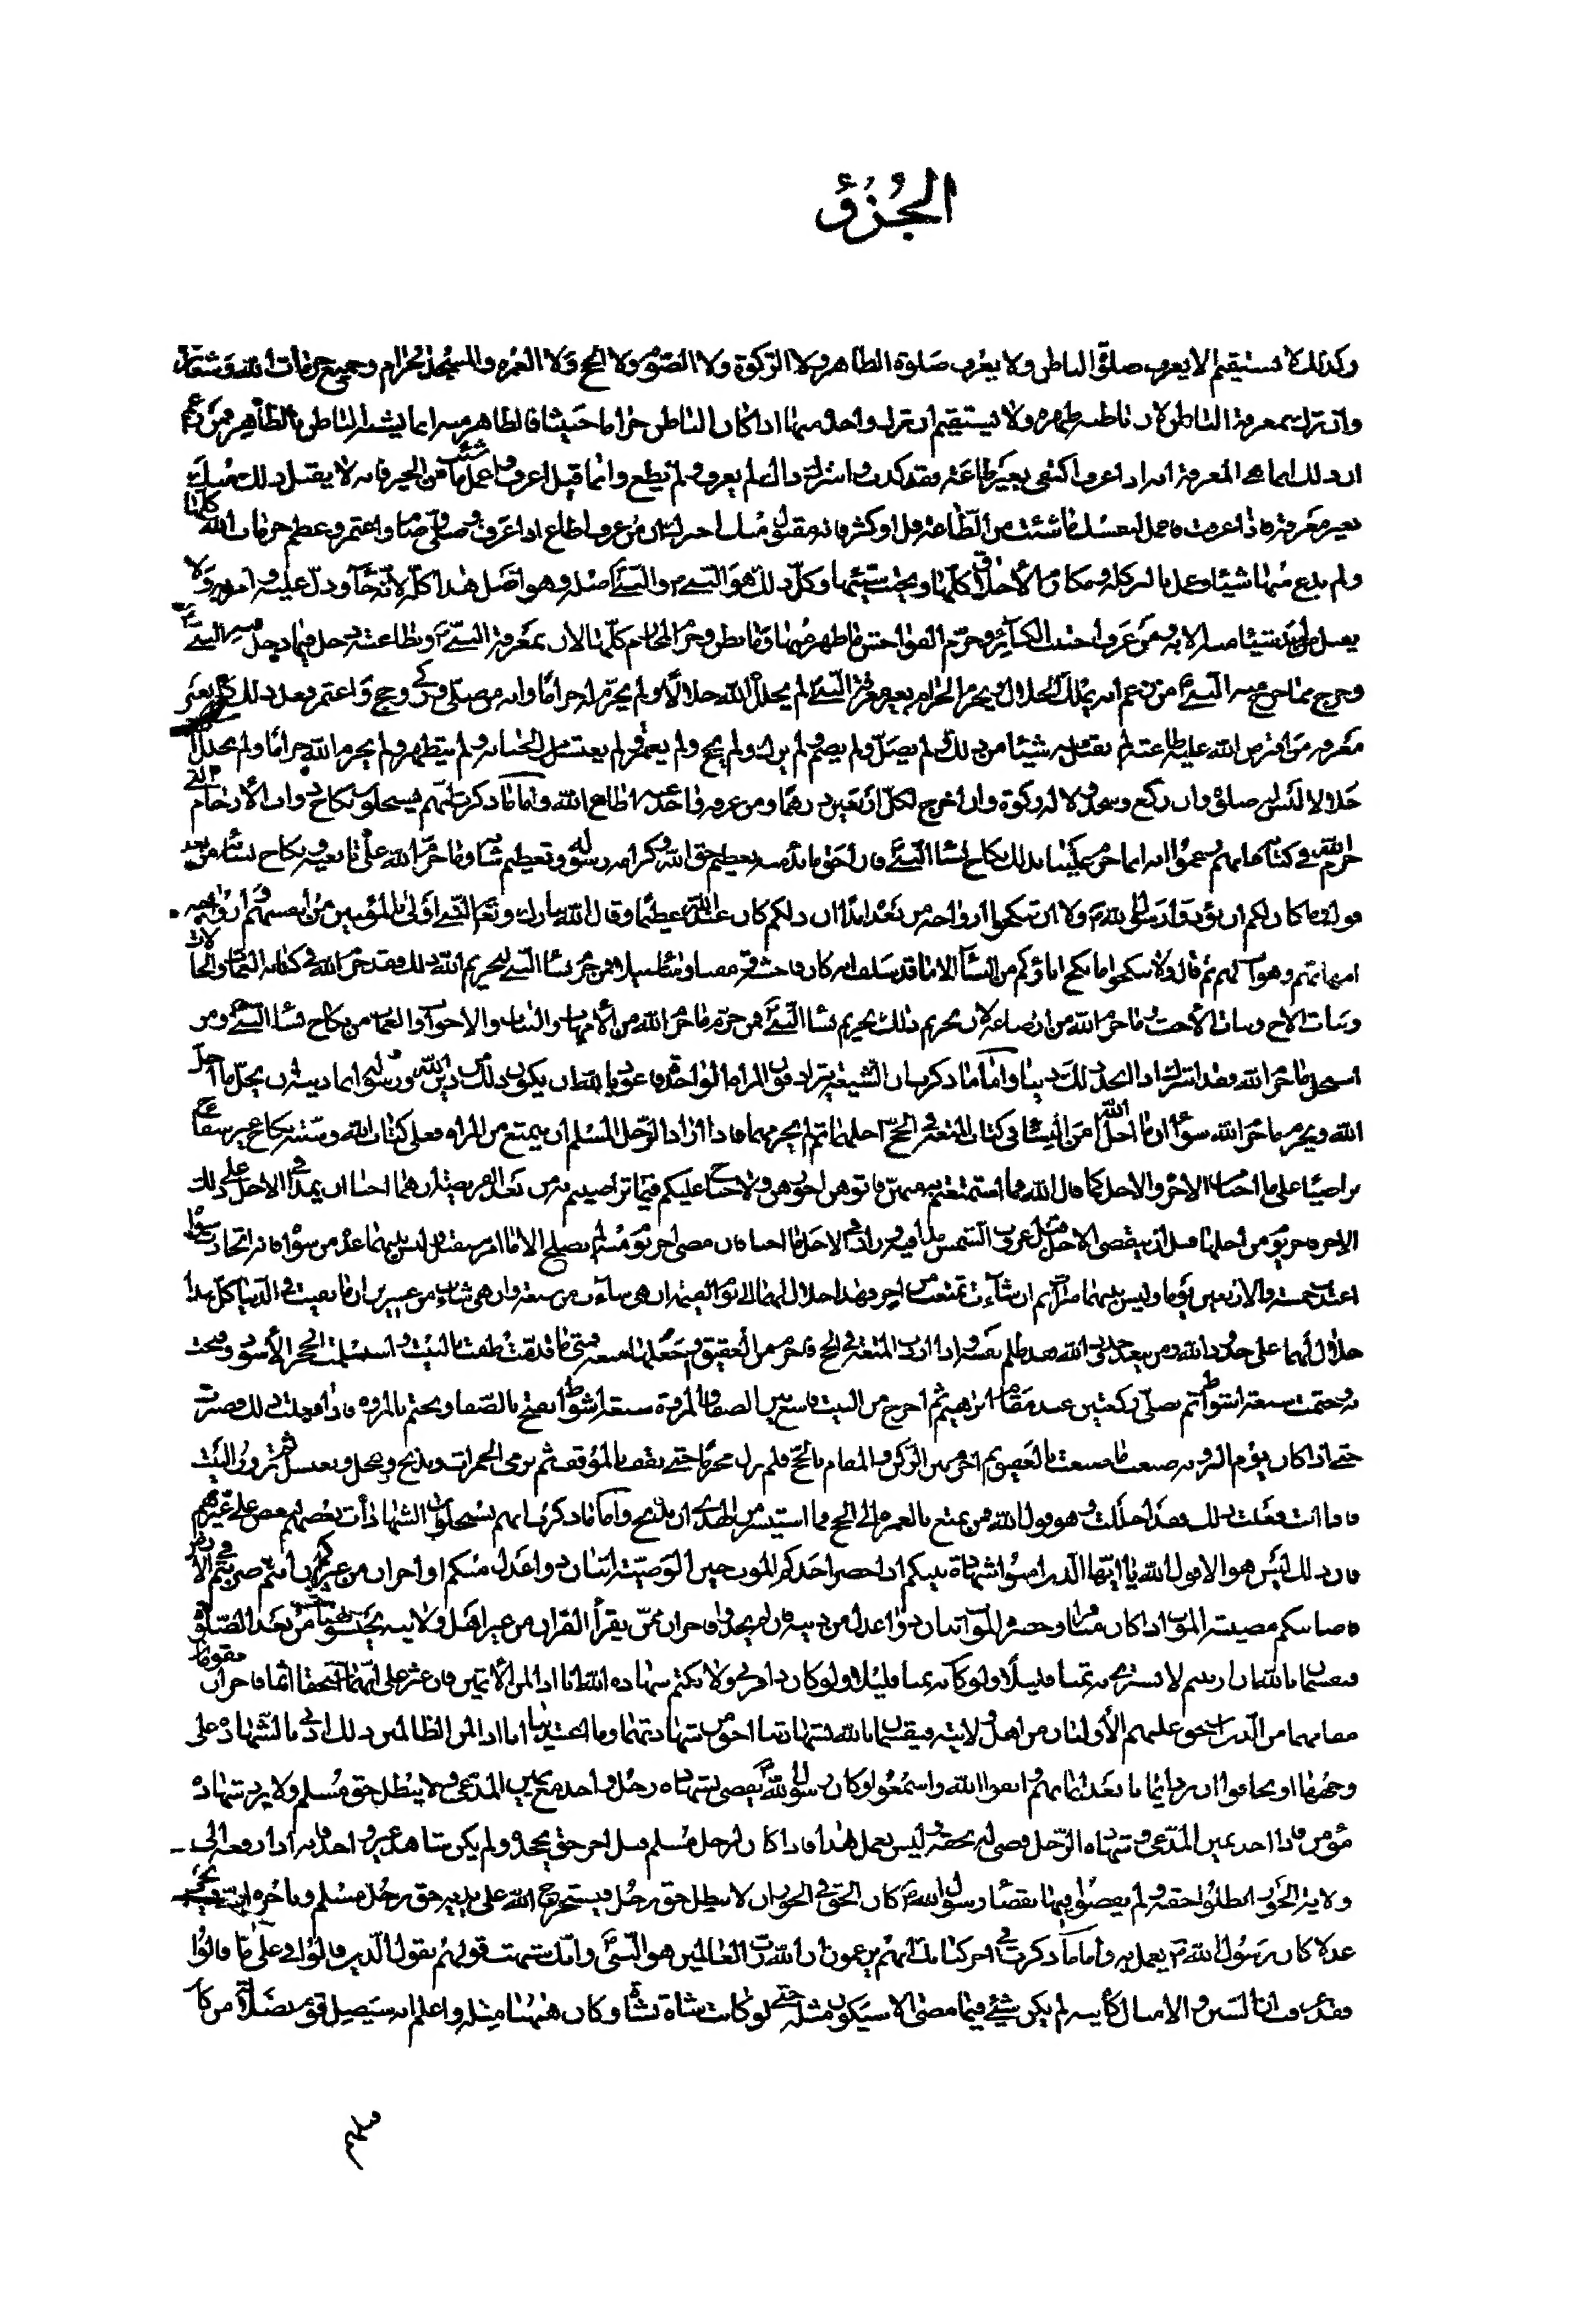 الجُزؤ
وكذلك لا يستقيم الا يعرف صلوة الباطن ولا يعرف صلوة الظاهر ولا الزكوة ولا الصّوم ولا الحج ولا العمره والمسجد الحرام وجميع حرمات الله وشعائره
وان ترك بمعرفة الباطن لان باطنه ظهره ولا يستقيم ان ترك واحدة منها اذا كان الباطن حراما خبيثا فالظاهر منه انما يشبه الباطن بالظاهر فمن زعم
ان ذلك انما هي المعرفة انه اذا عرف اكتفى بغير طاعته فقد كذب واشرك ذاك لم يعرف ولم يطع وانما قيل اعرف واعمل ما شئت من الخير فانه لا يقبل ذلك منك
بغير معرفة فاذا عرفت فاعمل لنفسك ما شئت من الطّاعة قل او كثر فانه مقبول منك اخبرك ان من عرف اطاع اذا عرف وصلّى وصام واعتمر وعظم حرمات الله كلها
ولم يدع منها شيئا وعمل بالبر كله ومكارم الأخلاق كلّها ويجتنب سيئها وكلّ ذلك هو النبي والنبي اصله وهو اصل هذا كلّه لانّه جاء ودلّ عليه وامر به ولا
يقبل من احد شيئا منه الا به ومن عرف اجتنب الكبائر وحرّم الفواحش ما ظهر منها وما بطن وحرّم المحارم كلّها لان بمعرفة النبي وبطاعته دخل فيما دخل فيه النبي
وخرج مما خرج منه النبي من زعم انه يملك الحلال ويحرم الحرام بغير معرفة النبي لم يحلل الله حلالا ولم يحرّم له حراما وانه من صلّى وزكى وحج واعتمر وفعل ذلك كله بغير
معرفة من افترض الله عليه طاعته لم يقبل منه شيئا من ذلك ولم يصلّ ولم يصم ولم يزك ولم يحج ولم يعتمر ولم يغتسل من الجنابة ولم يتطهر ولم يحرم الله حراما ولم يحلل
حلالا ليس له صلوة وان ركع وسجد ولا له زكوة وان اخرج لكل اربعين درهما ومن عرفه واخذ عنه اطاع الله واما ما ذكرت انهم يستحلون نكاح ذوات الأرحام التي
حرم الله في كتابه فانهم زعموا انه انما حرم علينا بذلك نكاح نساء النبي فان احق ما بدء به تعظيم حق الله وكرامة رسوله وتعظيم شانه وما حرّم الله على تابعيه ونكاح نسائه من بعد
قوله وما كان لكم ان تؤذوا رسول الله ولا ان تنكحوا ازواجه من بعده ابدا ان ذلكم كان عند الله عظيما وقال الله تبارك وتعالى النبي اولى بالمؤمنين من انفسهم وازواجه
امهاتهم وهو اب لهم ثم قال ولا تنكحوا ما نكح اباؤكم من النساء الا ما قد سلف انه كان فاحشة ومقتا وساء سبيلا فمن حرم نساء النبي لتحريم الله ذلك فقد حرم الله في كتابه العمات والخالات
وبنات الاخ وبنات الأخت وما حرم الله من الرضاعة لان تحريم ذلك تحريم نساء النبي فمن حرم ما حرم الله من الأمهات والبنات والاخوات والعمات من نكاح نساء النبي ومن
استحل ما حرم الله فقد اشرك اذا اتخذ ذلك دينا وامّا ما ذكرت ان الشيعة يترادفون المراة الواحدة فاعوذ بالله ان يكون ذلك من دين الله ورسوله انما دينه ان يحلّ ما احل
الله ويحرم ما حرم الله سواء ان ما احل الله من النساء في كتابه المتعة في الحجّ احلهما ثم لم يحرمهما فاذا اراد الرّجل المسلم ان يتمتع من المراة فعلى كتاب الله وسنته نكاح غير سفاح
تراضيا على ما احبا من الاجر والاجل كما قال الله فما استمتعتم به منهن فاتوهن اجورهن ولا جناح عليكم فيما تراضيتم به من بعد الفريضة ان هما احبا ان يمدا في الاجل على ذلك
الاجر فاخر يوم من اجلها قبل ان ينقضي الاجل قبل غروب الشمس مدا فيه وزادا في الاجل ما احبا فان مضى اخر يوم منه لم يصلح الا بامر مستقبل وليس بينهما عدة من سواه فان اتخذت سواه
اعتدت خمسة واربعين يوما وليس بينهما ميراث ثم ان شاءت تمتعت من اخر فهذا حلال لهما الى يوم القيمة ان هي شاءت من سبعة وان هي شاءت من عشرين ما بقيت في الدّنيا كلّ هذا
حلال لهما على حدود الله ومن يتعد حدود الله فقد ظلم نفسه واذا اردت المتعة في الحج فاحرم من العقيق واجعلها متعة فمتى ما قدمت طفت بالبيت واستلمت الحجر الأسود وفتحت
به وختمت سبعة اشواط ثم تصلّي ركعتين عند مقام ابرهيم ثم اخرج من البيت فاسع بين الصفا والمروة سبعة اشواط تفتح بالصّفا وتختم بالمروة فاذا فعلت ذلك قصرت
حتى اذا كان يوم التروية صنعت ما صنعت بالعقيق ثم احرم بين الركن والمقام بالحجّ فلم تزل محرما حتى تقف بالموقف ثم ترمي الجمرات وتذبح وتحل وتغتسل ثم تزور البيت
فاذا انت فعلت ذلك فقد احللت وهو قول الله فمن تمتع بالعمرة الى الحج فما استيسر من الهدي ان تذبح واما ما ذكرت انهم يستحلون الشهادات بعضهم لبعض على غيرهم
فان ذلك ليس هو الا قول الله يا ايّها الّذين امنوا شهادة بينكم اذا حضر احدكم الموت حين الوصيّة اثنان ذوا عدل منكم او اخران من غيركم ان انتم ضربتم في الارض
فاصابتكم مصيبة الموت اذا كان مسافرا وحضره الموت اثنان ذوا عدل من دينه فان لم يجدوا فاخران ممّن يقرأ القران من غير اهل ولايته تحبسونهما من بعد الصّلوة
فيقسمان بالله ان ارتبتم لا نشتري به ثمنا قليلا ولو كان ذا قربى ولا نكتم شهادة الله انا اذا لمن الأثمين فان عثر على انّهما استحقا اثما فاخران يقومان
مقامهما من الّذين استحق عليهم الأوليان من اهل ولايته فيقسمان بالله لشهادتنا احق من شهادتهما وما اعتدينا انا اذا لمن الظالمين ذلك ادنى ان ياتوا بالشّهادة على
وجهها او يخافوا ان ترد ايمان بعد ايمانهم واتقوا الله واسمعوا وكان رسول الله يقضي بشهادة رجل واحد مع يمين المدّعي ولا يبطل حق مسلم ولا يرد شهادة
مؤمن فاذا اخذ يمين المدّعي وشهادة الرّجل قضى له بحقه وليس يعمل بهذا فاذا كان لرجل مسلم قبل اخر حق يجحده ولم يكن شاهد غير واحد فانه اذا رفعه الى
ولاة الجور ابطلوا حقه ولم يقضوا فيها بقضاء رسول الله كان الحق في الجور ان لا يبطل حق رجل فيستخرج الله على يديه حق رجل مسلم وياجره الله
عدلا كان رسول الله يعمل به واما ما ذكرت في اخر كتابك انهم يزعمون ان الله رب العالمين هو النبي وانك شبهت قولهم بقول الّذين قالوا في علي ما قالوا
فقد عرفت ان السنن والامثال كائنة لم يكن شيئ فيما مضى الا سيكون مثله حتى لو كانت شاة برشاء كان ههنا مثله واعلم انه سيضل قوم بضلالة من كان